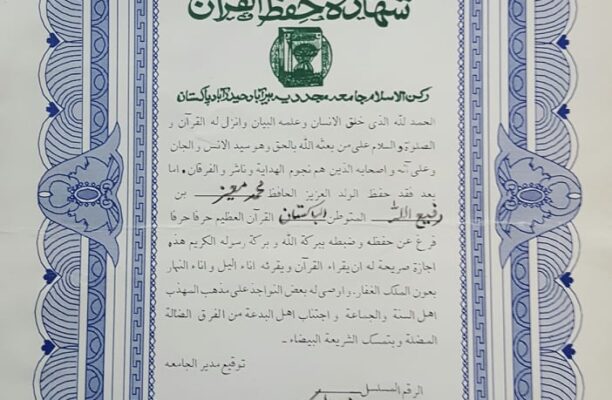 شهادة حفظ القرآن
ركن الاسلام جامعه مجدديه هيرآباد حيدرآباد پاكستان
الحمد لله الذى خلق الانسان وعلمه البيان وانزل له القرآن و
الصلوة و السلام على من بعثه الله بالحق وهو سيد الانس والجان
وعلى آله و اصحابه الذين هم نجوم الهداية وناشر و الفرقان . اما
بعد فقد حفظ الولد العزيز الحافظ محمد معيز بن
رفيع الله المتوطن پاكستان القرآن العظيم حرفا حرفا
فرغ عن حفظه و ضبطه ببركة الله و بركة رسوله الكريم هذه
اجازة صريحة له ان يقراء القرآن و يقرئه اناء اليل و اناء النهار
بعون الملك الغفار . و اوصى له بعض النواجذ على مذهب المهذب
اهل السنة والجماعة و اجتناب اهل البدعة من الفرق الضالة
المضلة و بتمسك الشريعة البيضاء ـ
توقيع مدير الجامعه
الرقم المسلسل